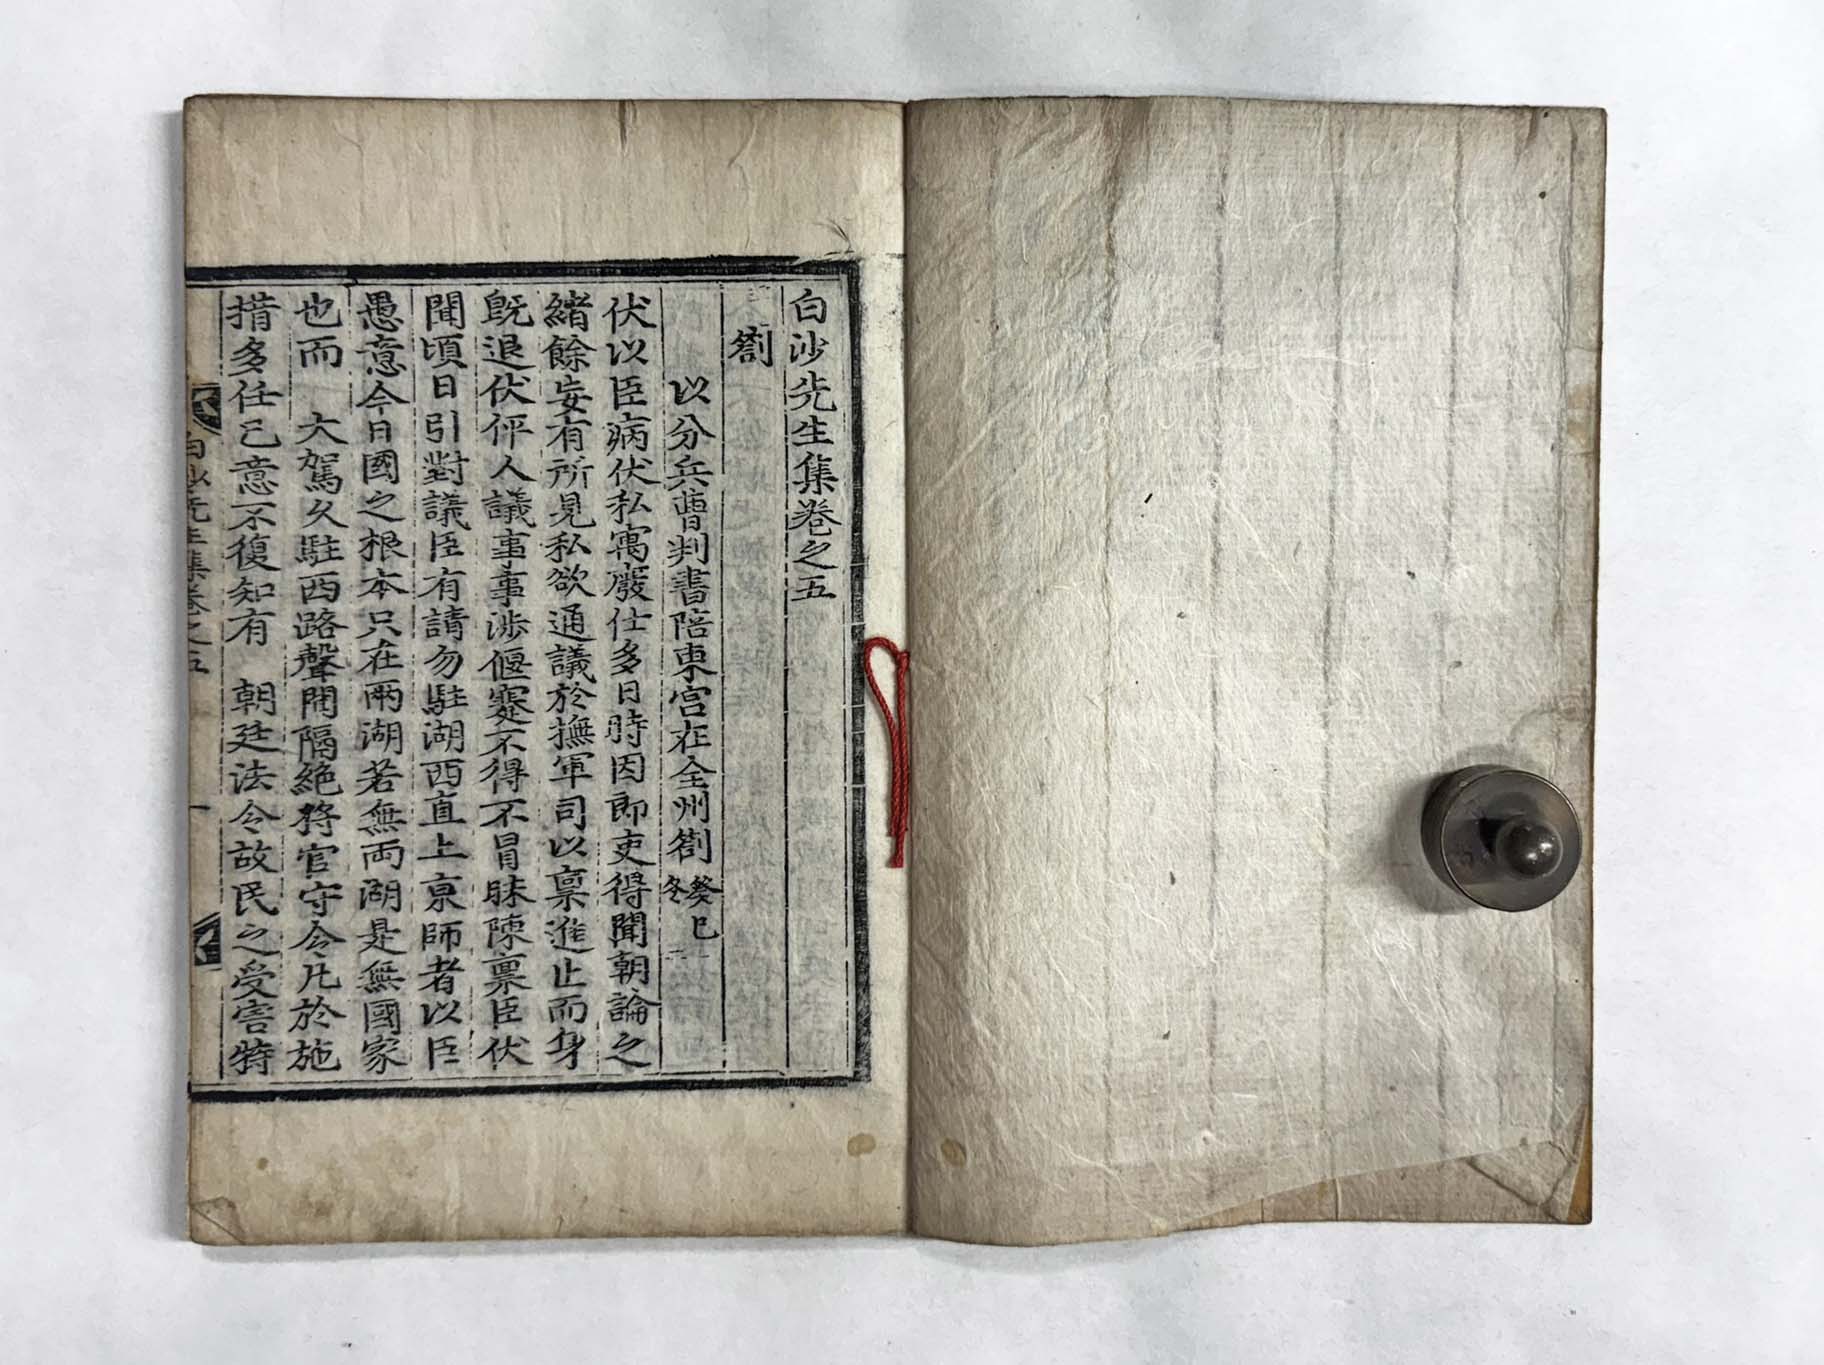 白沙先生集卷之五
劄
以分兵曹判書陪東宮在全州劄 癸巳冬
伏以臣病伏私寓廢仕多日時因郎吏得聞朝論之
緖餘妄有所見私欲通議於撫軍司以禀進止而身
旣退伏伻人議事事涉偃蹇不得不冒昧陳禀臣伏
聞頃日引對議臣有請勿駐湖西直上京師者以臣
愚意今日國之根本只在兩湖若無両湖是無國家
也而 大駕久駐西路聲聞隔絶將官守令凡於施
措多任己意不復知有 朝廷法令故民之受害特
白沙先生集卷之五 一